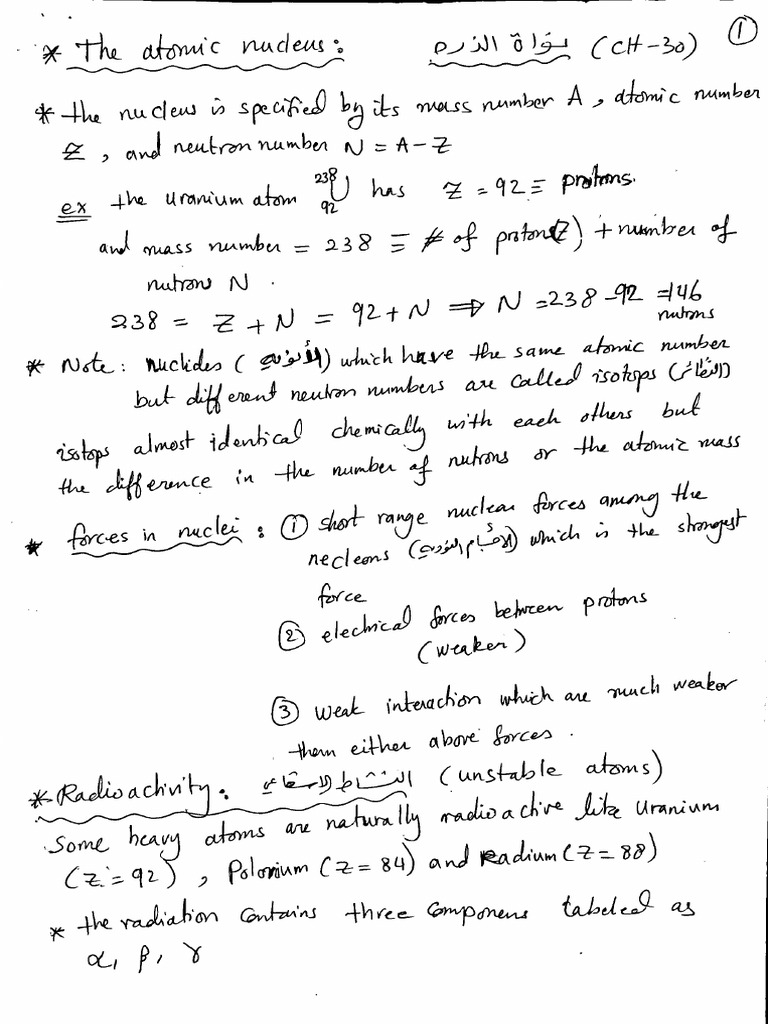 ①
* The atomic nucleus: نواة الذره (CH-30)
* the nucleus is specified by its mass number A, atomic number
Z, and neutron number N = A-Z
ex the uranium atom ²³⁸₉₂U has Z = 92 ≡ protons.
and mass number = 238 ≡ # of protons(Z) + number of
nutrons N.
238 = Z + N = 92 + N ⇒ N = 238 - 92 = 146
nutrons
* Note: nuclides (الأنويه) which have the same atomic number
but different neutron numbers are called isotops (النظائر)
isotops almost identical chemically with each others but
the difference in the number of nutrons or the atomic mass
* forces in nuclei: ① short range nuclear forces among the
necleons (الاجسام النوويه) which is the strongest
force
② electrical forces between protons
(weaker)
③ weak interaction which are much weaker
them either above forces.
* Radioactivity: النشاط الاشعاعي (unstable atoms)
Some heavy atoms are naturally radioactive like uranium
(Z = 92), Polonium (Z = 84) and Radium (Z = 88)
* the radiation contains three componens labeled as
α, β, γ